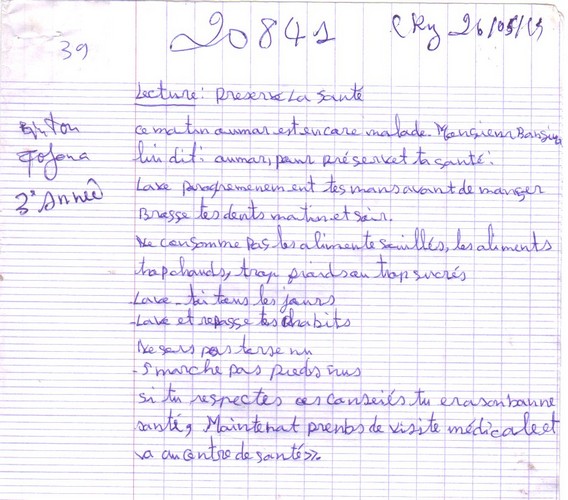 39
20841
CKy 26/05/
Lecture: Preserve La santé
Binton
Fofana
3e Année
ce matin aumar est encare malade. Monsieur Bangura
lui dit: aumar, paur préservet ta santé:
Lave progremenement tes mans avant de manger
Brasse tes dents matin et sair.
Ne cansomme pas les alimente sauillés, les aliments
trap chauds, trap fraids au trap sucrés
-Lave-tai taus les jaurs
-Lave et repasse tes habits
Ne sars pas tarse nu
marche pas pieds nus
si tu respectes ces canseils tu eras on banne
santé, Maintenat prends de visite médicale et
va au centre de santé».